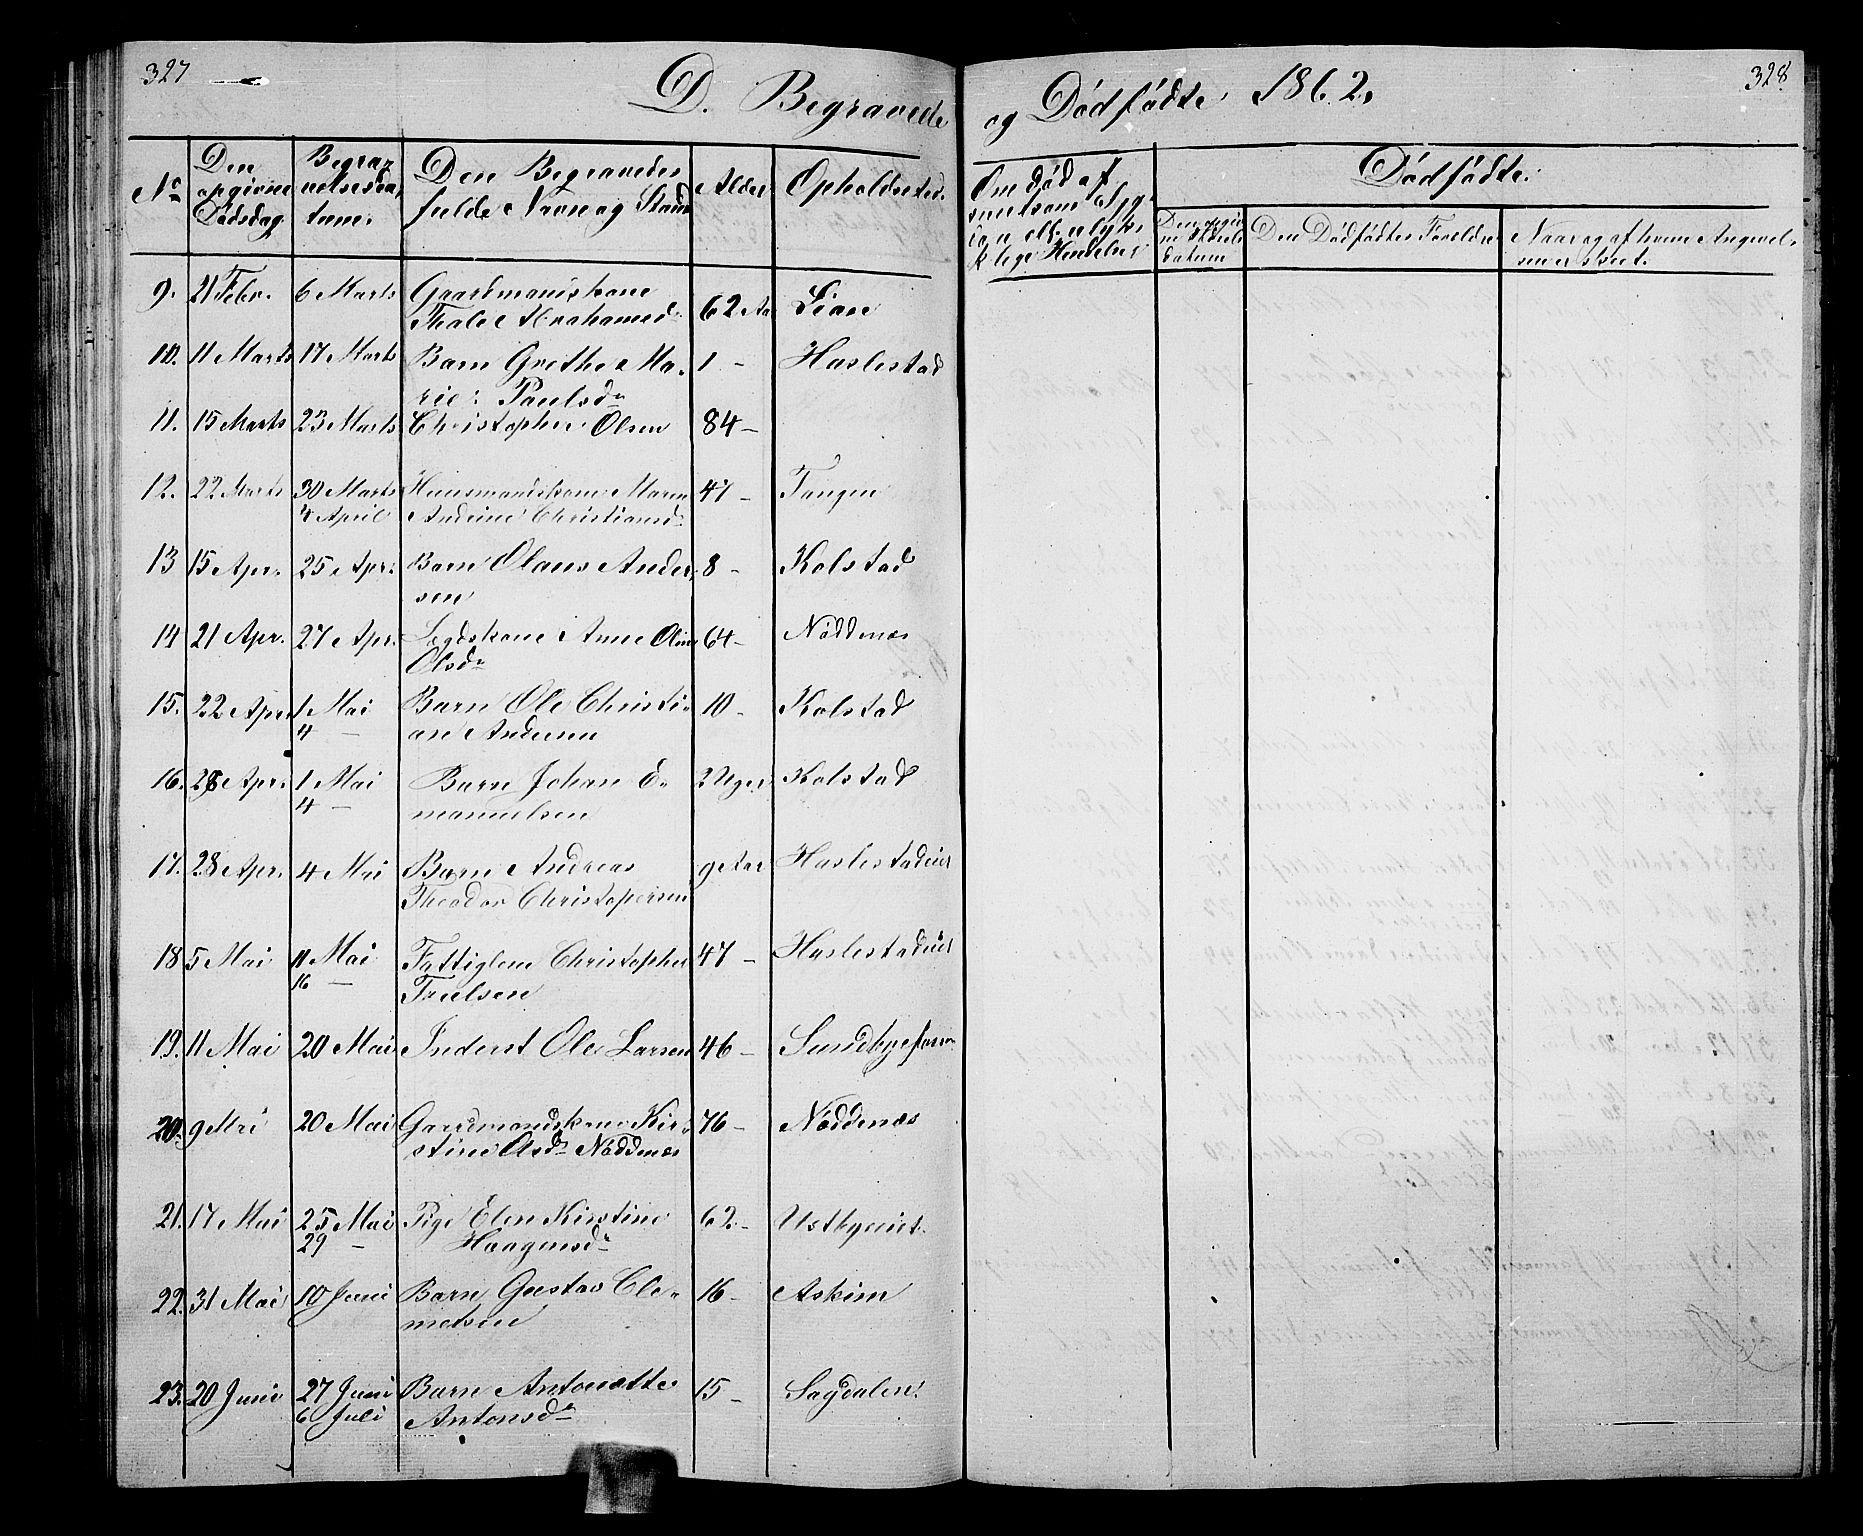 327
328
D. Begravede
og Dødfødte 1862.
No
Den opgivne Dødsdag
Begravelsesdatum.
Den Begravedes fulde Navn og Stand
Alder
Opholdssted.
Om død af
Dødfødte.
Den Dødfødtes Forældre
Naar og af hvem Anmel-
sen er skeet.
9. 21 Febr. 6 Marts Gaardmandskone 62 Aar Lian
Thale Abrahamsdr
10. 11 Marts 17 Marts Barn Grethe Ma- 1 - Haslestad
rie Paulsdr
11. 15 Marts 23 Marts Christopher Olsen 84 -
12. 22 Marts 30 Marts Huusmandskone Maren 47 - Tangen
4 April Andrine Christiansd.
13 15 Apr. 25 Apr. Barn Olaus Ander- 8 - Kolstad
sen
14 21 Apr. 27 Apr. Legdskone Anne Oline 64 - Nøddenæs
Olsdr
15. 22 Apr. 1 Mai Barn Ole Christi- 10 - Kolstad
4 — an Andersen
16. 28 Apr. 1 Mai Barn Johan E- 2 Uger Kolstad
4 — manuelsen
17. 28 Apr. 4 Mai Barn Andreas 9 Aar Haslestadeiet
Theodor Christopersen
18 5 Mai 11 Mai Fattiglem Christopher 47 - Haslestadeiet
16 — Truelsen
19. 11 Mai 20 Mai Inderst Ole Larsen 46 -
20. 9 Mai 20 Mai Gaardmandskone Kir- 76 - Nøddenæs
stine Olsdr Nøddenæs
21. 17 Mai 25 Mai Pige Elen Kirstine 62 - Østbyeiet.
29 — Haagensdr
22. 31 Mai 10 Juni Barn Gustav Cle- 16 - Askim
metsen
23. 20 Juni 27 Juni Barn Antonette 15 - Sagdalen.
6 Juli Antonsdr